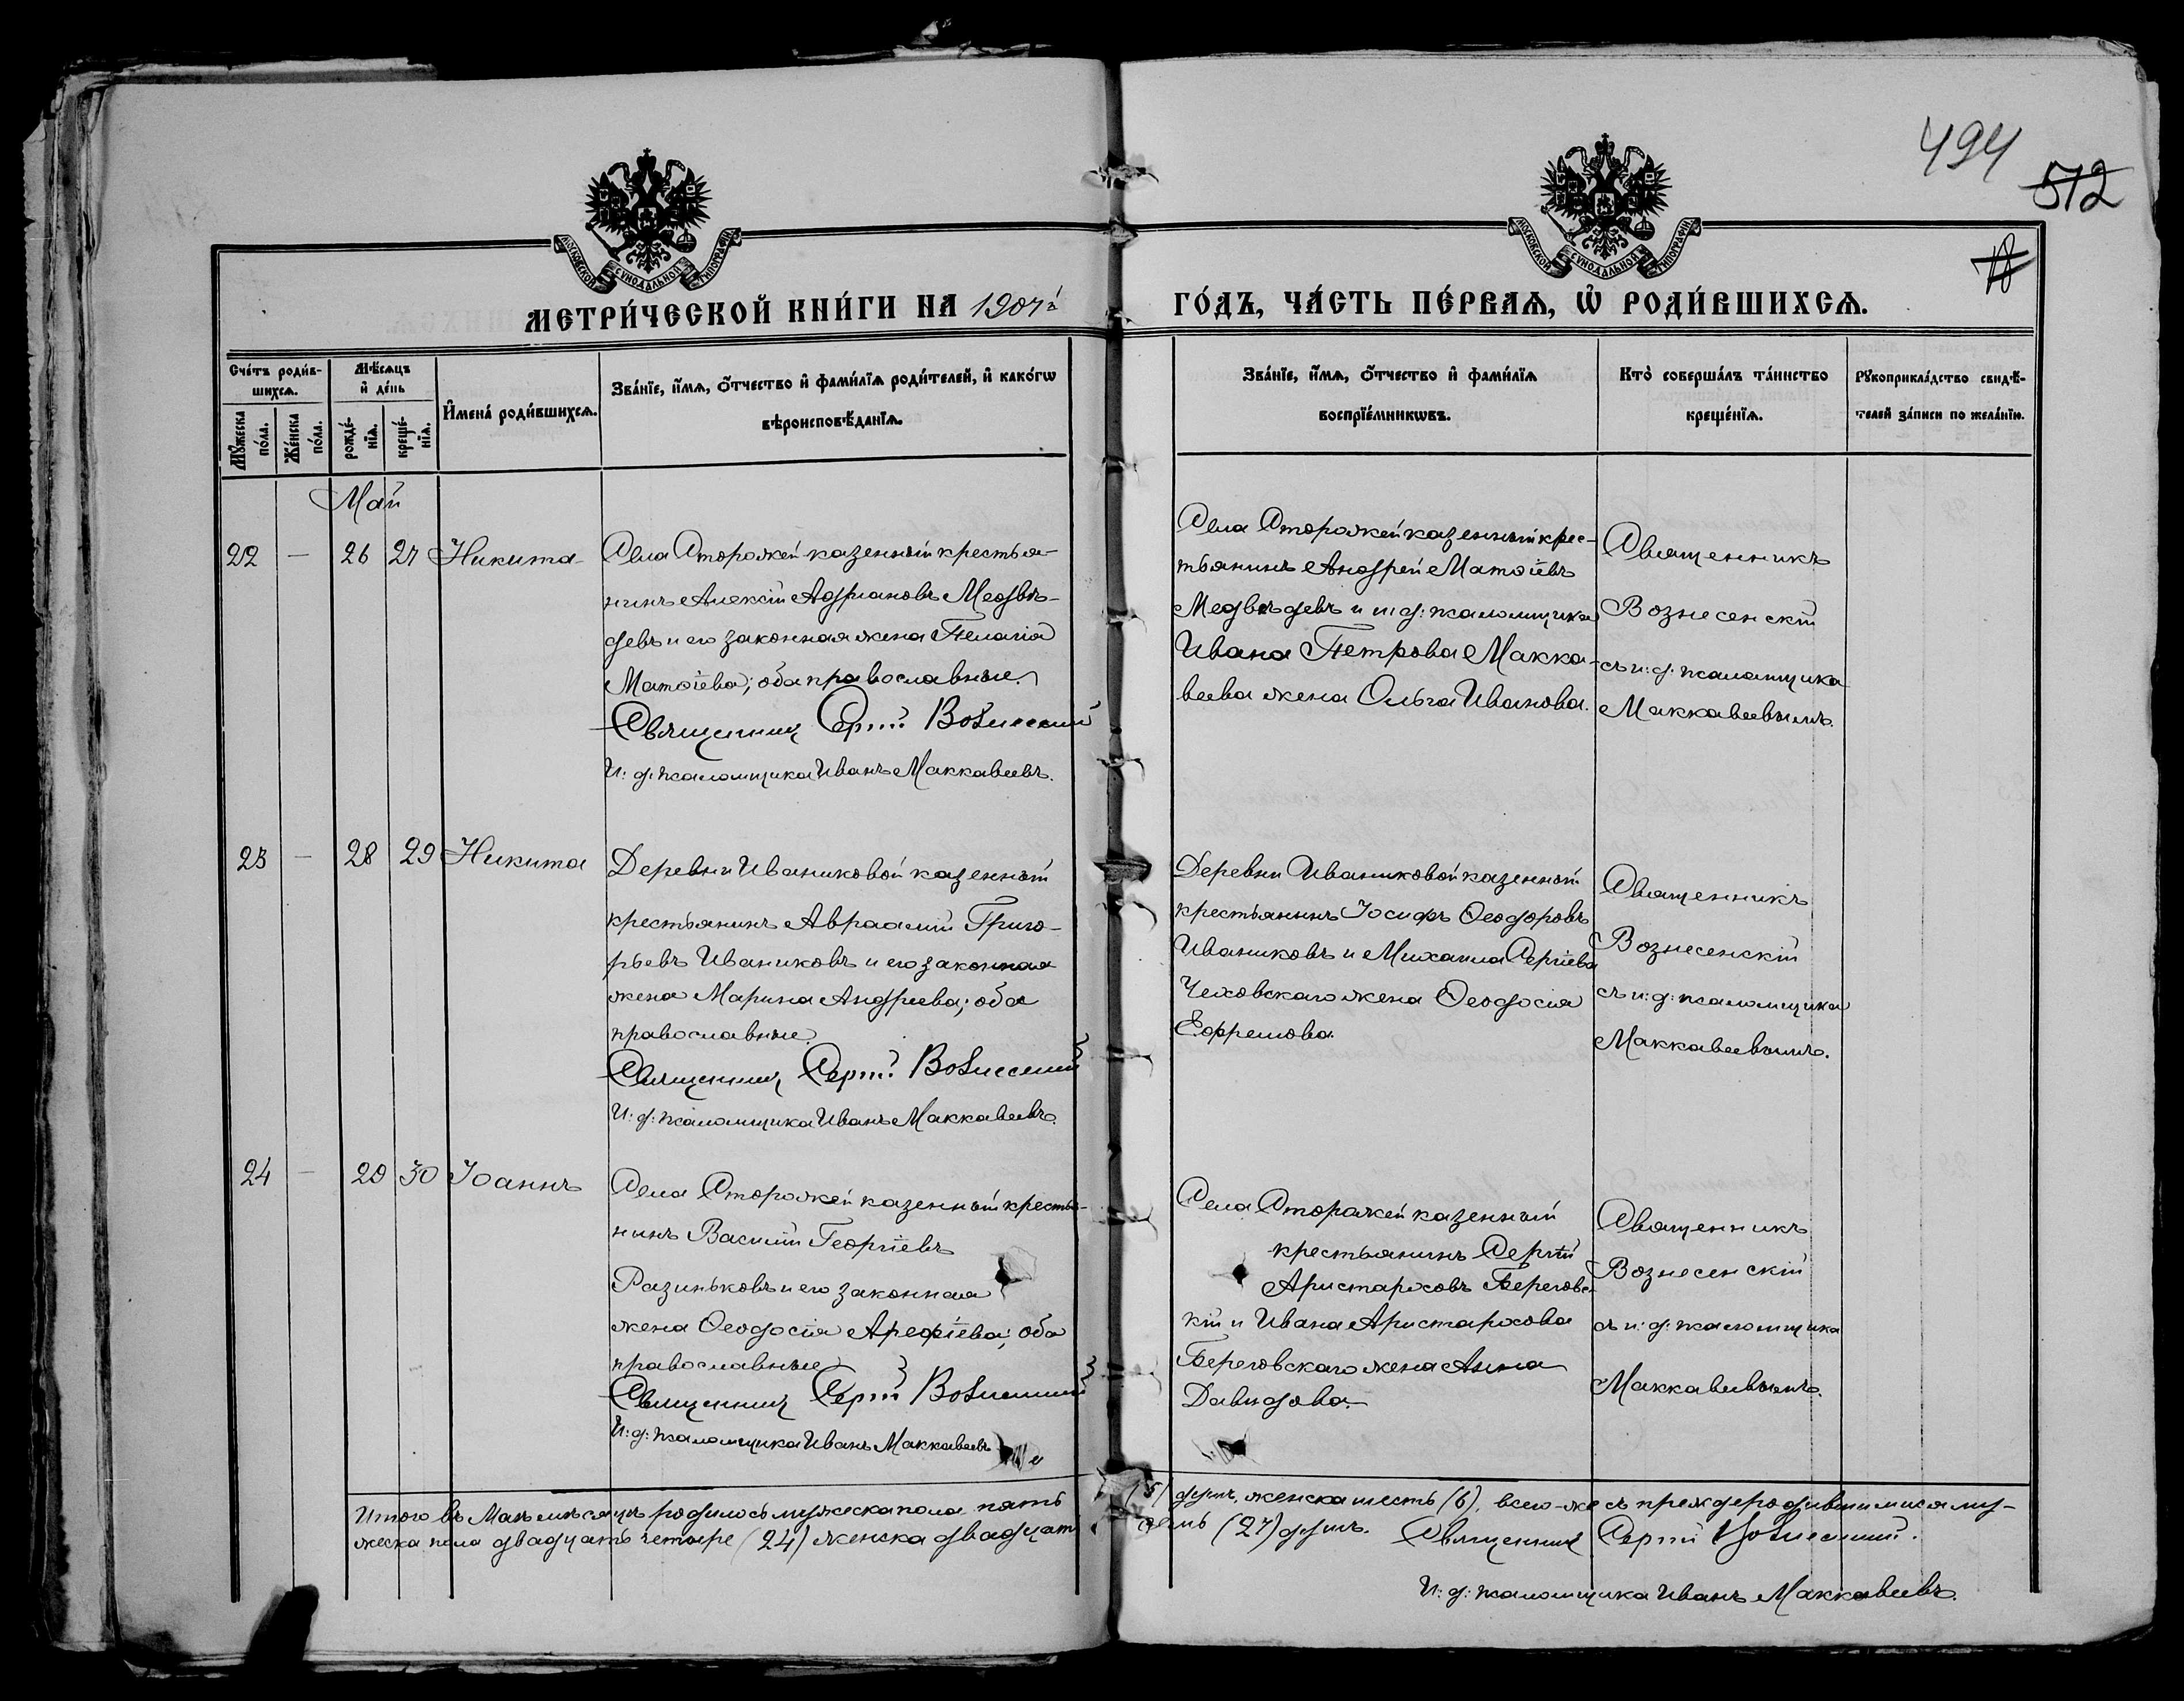 494
512
МОСКОВСКОЙ СѴНОДАЛЬНОЙ ТИПОГРАФІИ
МОСКОВСКОЙ СѴНОДАЛЬНОЙ ТИПОГРАФІИ
МЕТРИ́ЧЕСКОЙ КНИ́ГИ НА 1907й
ГО́ДЪ, ЧА́СТЬ ПЕ́РВАѦ, Ѡ҆ РОДИ́ВШИХСѦ.
Сче́тъ роди́в-
шихсѧ.
Мꙋ́жеска по́ла.
Же́нска по́ла.
Мѣ́сѧцъ
и҆ де́нь
рожде́-
нїѧ.
креще́-
нїѧ.
И҆мена̀ роди́вшихсѧ.
Зва́нїе, и҆́мѧ, ѻ҆́тчество и҆ фами́лїѧ роди́телей, и҆ како́гѡ
вѣроисповѣ́данїѧ.
Зва́нїе, и҆́мѧ, ѻ҆́тчество и҆ фами́лїѧ
воспрїе́мникѡвъ.
Кто̀ соверша́лъ та́инство
креще́нїѧ.
Рꙋкоприкла́дство свидѣ́-
телей за́писи по жела́нїю.
Май
22 — 26 27 Никита
Села Сторожей казенный крестья-
нинъ Алексій Адріановъ Медвѣ-
девъ и его законная жена Пелагія
Матѳіева; оба православные.
Священникъ Сергій Вознесенскій
И: д: псаломщика Иванъ Маккавеевъ.
Села Сторожей казенный крес-
тьянинъ Андрей Матѳіевъ
Медвѣдевъ и и: д: псаломщика
Ивана Петрова Макка-
веева жена Ольга Иванова.
Священникъ
Вознесенскій
съ и: д: псаломщика
Маккавеевымъ.
23 — 28 29 Никита
Деревни Иваниковой казенный
крестьянинъ Авраамій Григо-
рьевъ Иваниковъ и его законная
жена Марина Андреева; оба
православные.
Священникъ Сергій Вознесенскій
И: д: псаломщика Иванъ Маккавеевъ.
Деревни Иваниковой казенный
крестьянинъ Іосифъ Ѳеодоровъ
Иваниковъ и Михаила Сергіева
Чеховскаго жена Ѳеодосія
Ефремова.
Священникъ
Вознесенскій
съ и: д: псаломщика
Маккавеевымъ.
24 — 29 30 Іоаннъ
Села Сторожей казенный крестья-
нинъ Василій Георгіевъ
Разиньковъ и его законная
жена Ѳеодосія Арефіева; оба
православные
Священникъ Сергій Вознесенскій
И: д: псаломщика Иванъ Маккавеевъ
Села Сторожей казенный
крестьянинъ Сергій
Аристарховъ Береговс-
кій и Ивана Аристархова
Береговскаго жена Анна
Давидова.
Священникъ
Вознесенскій
съ и: д: псаломщика
Маккавеевымъ.
Итого въ Маѣ мѣсяцѣ родилось мужеска пола пять (5) душъ, женска шесть (6), всего-же съ прежде родившимися му-
жеска пола двадцать четыре (24) женска двадцать семь (27) душъ. Священникъ Сергій Вознесенскій.
И: д: псаломщика Иванъ Маккавеевъ.